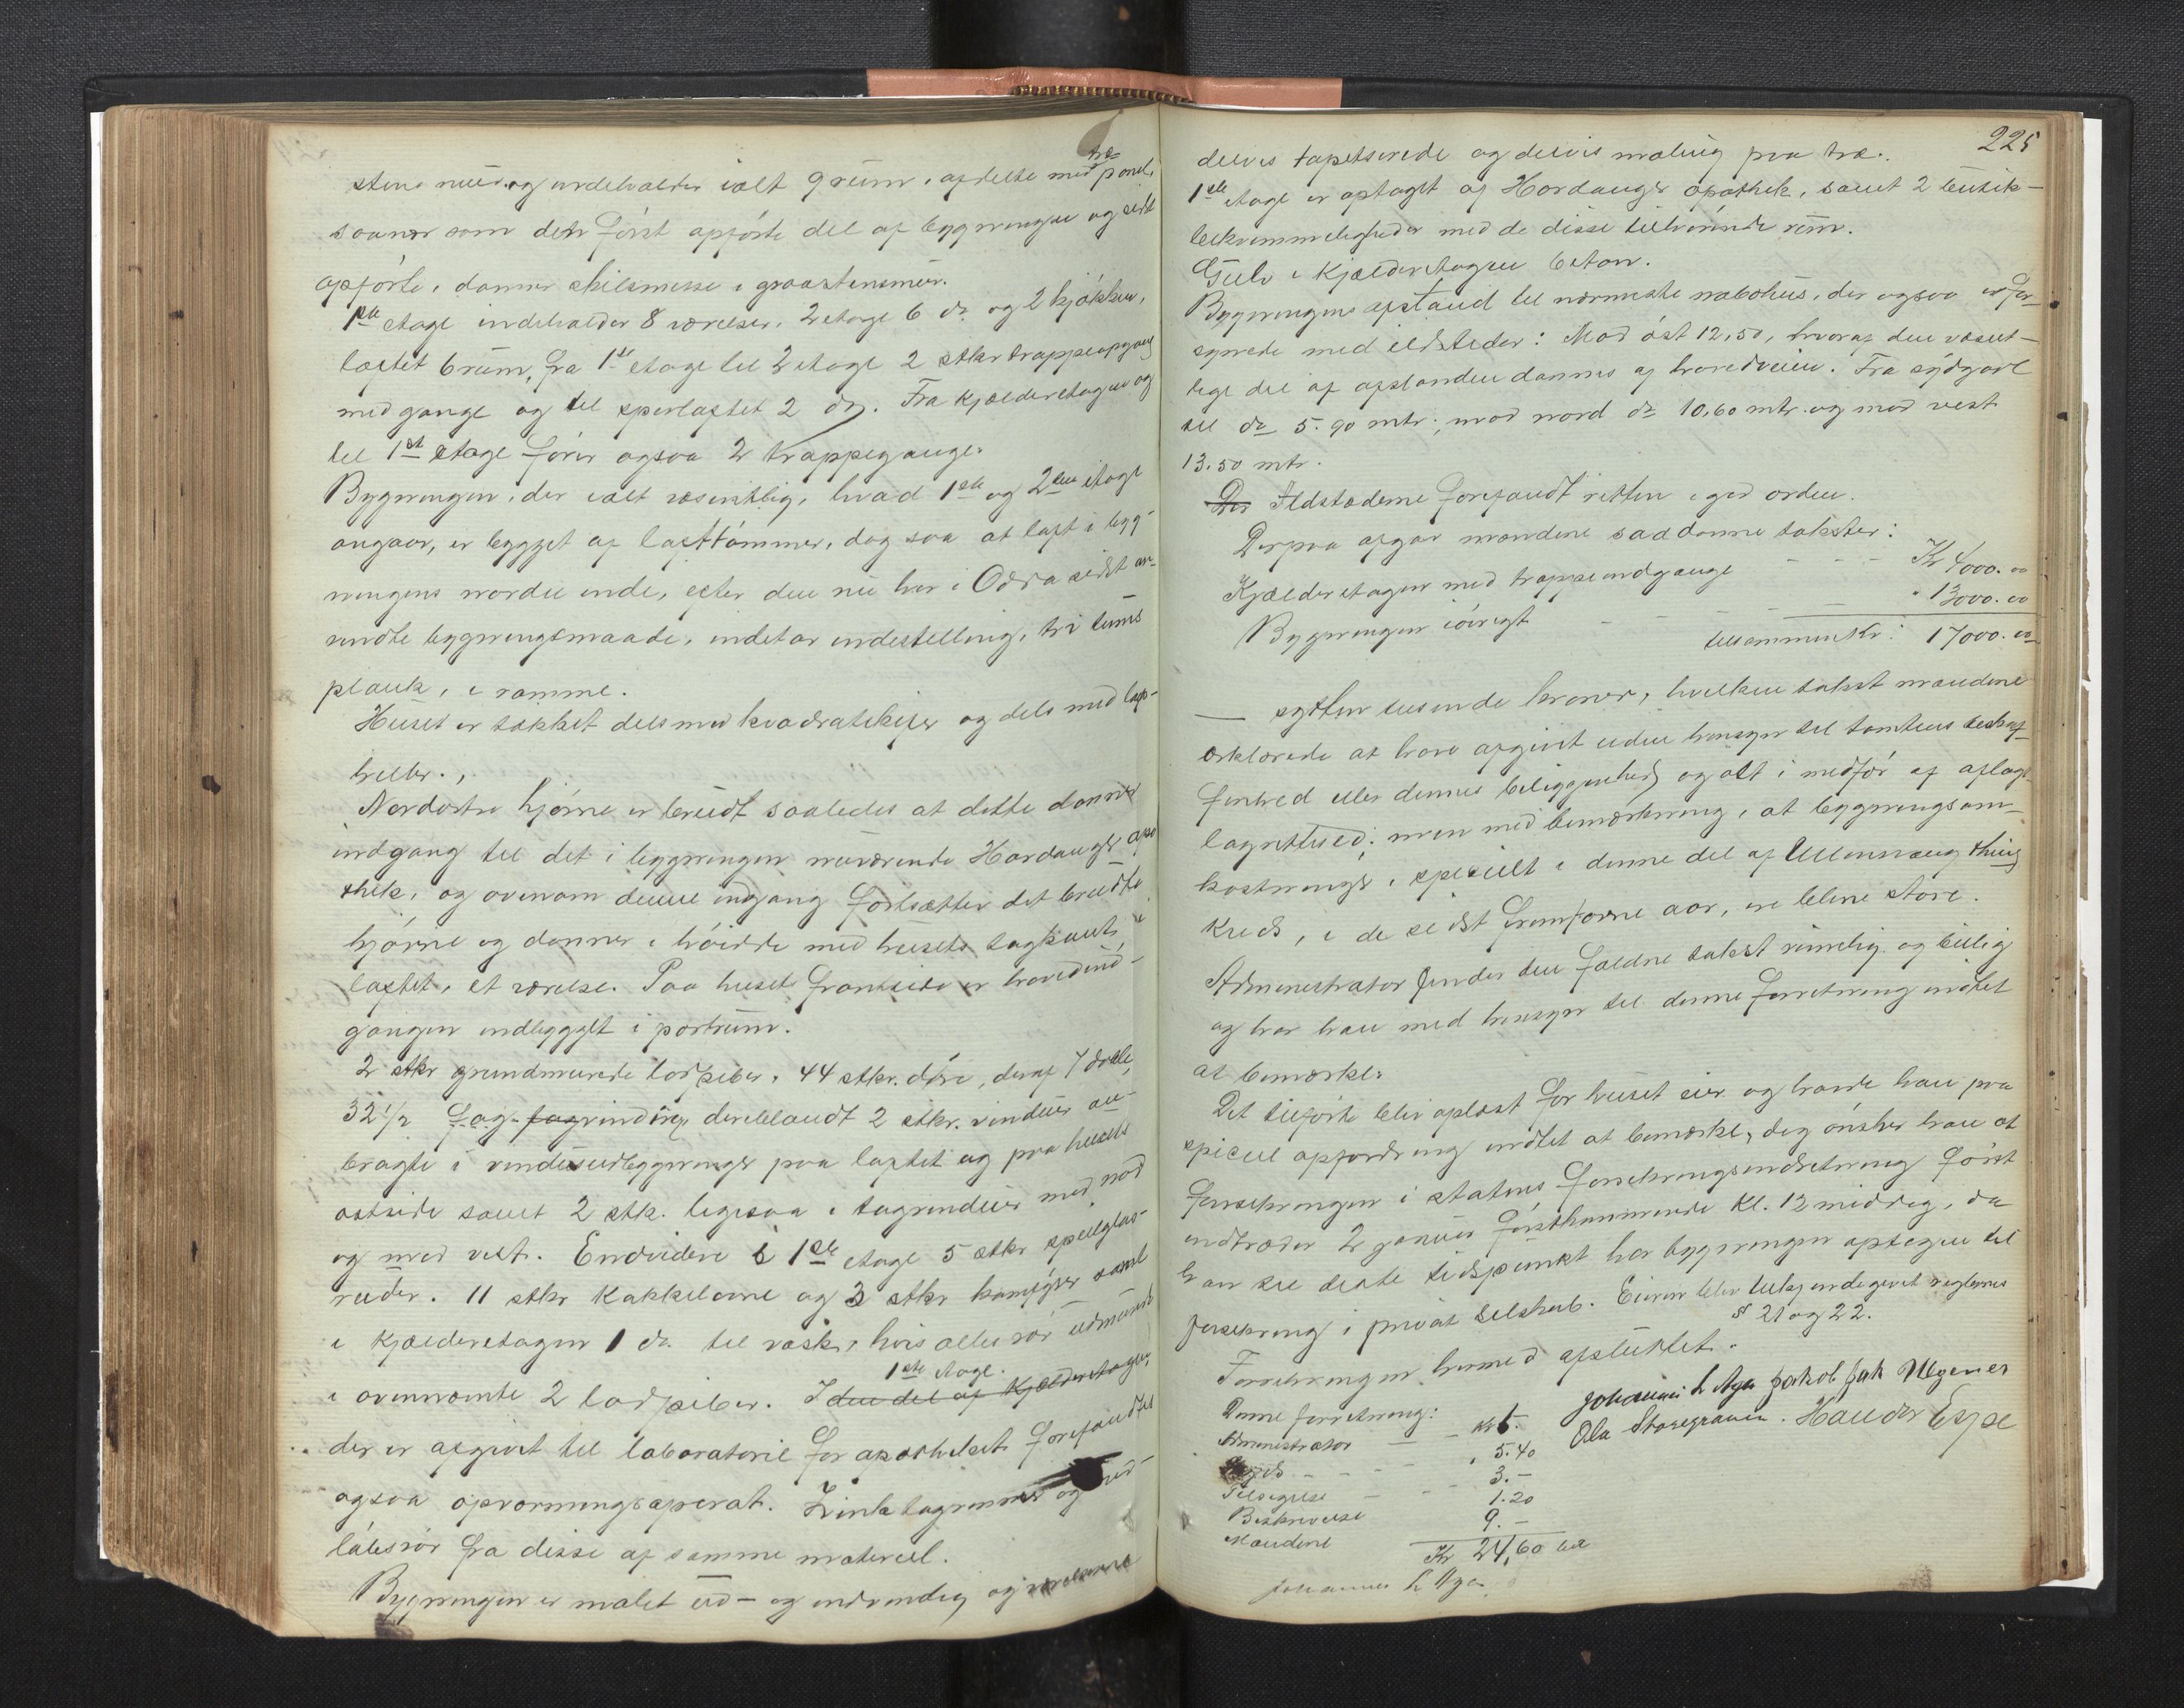 stens mur og indeholder ialt 9 rum, afdelte med træ-panel,
saavær som den først opførte del af bygningen og sidst
opførte, danner skilsmisse i graastensmur.
1ste etage indeholder 8 værelser, 2 etage 6 do. og 2 kjøkken,
loftet 6 rum, fra 1ste etage til 2 etage 2 stkr trappeopgang
med gange og til sperloftet 2 do. Fra kjælderetagen og
til 1ste etage fører ogsaa 2 trappegange.
Bygningen, der ialt væsentlig, hvad 1ste og 2den etage
angaar, er bygget af lafttømmer, dog saa at loft i byg-
ningens nordre ende, efter den nu her i Odda sidst an-
vendte bygningsmaade, indetar indestelling, tri tums
plank, i ramme.
Huset er tækket dels med kvadratskifer og dels med lap-
heller.,
Nordøstre hjørne er brudt saaledes at dette danner
indgang til det i bygningen nuværende Hardanger apo-
thek, og ovenom denne indgang fortsætter det brudte
hjørne og danner i høidde med husets tagkant, i
loftet, et værelse. Paa husets frontside er hovedind-
gangen indbygget i portrum.
2 stkr grundmurede lodpiber, 44 stkr. døre, deraf 7 doble,
32 1/2 fag fagvinduer, deriblandt 2 stkr. vinduer an-
bragte i vindusudbygninger paa loftet og paa husets
østside samt 2 stk. ligesaa i tagvinduer mod nord
og mod vest. Endvidere i 1ste etage 5 stkr speilglas-
ruder. 11 stkr kakkelovne og 3 stkr komfyrer samt
i kjælderetagen 1 do. til vask, hvis alles rør udmunde
i ovennævnte 2 lodpiber. I den del af kjælderetagen
1ste etage.
der er afgivet til laboratorie for apotheket forefandtes
ogsaa opvarmningsaperat. Zink tagrenner og ned-
løbsrør fra disse af samme materiel.
Bygningen er malet ud- og indvendig og værelserne
225
delvis tapetserede og delvis maling paa træ.
1ste etage er optaget af Hardanger apothek, samt 2 butik-
bekvemmeligheder med de disse tilhørende rum.
Gulv i kjælderetagen beton.
Bygningens afstand til nærmeste nabohus, der ogsaa er for-
synede med ildsteder: Mod øst 12,50, hvoraf den væsent-
lige del af afstanden dannes af hovedveien. Fra sydgavl
til do 5.90 mtr., mod nord do 10,60 mtr. og mod vest
13.50 mtr.
Der Ildstederne forefandt retten i god orden.
Derpaa afgav mændene saadanne takster:
Kjælderetagen med trappeindgange - - - Kr 4000.00
Bygningen iøvrigt - - - " 13000.00
tilsammen Kr: 17000.00
— sytten tusinde kroner, hvilken takst mændene
erklærede at have afgivet uden hensyn til tomtens beskaf-
fenhed eller dennes beliggenhed og alt i medfør af aflagt
lagrettesed; men med bemærkning, at bygningsom-
kostninger, specielt i denne del af Ullensvang thing
kreds, i de sidst fremfarne aar, er blevne store.
Administrator finder den faldne takst rimelig og billig
og har han med hensyn til denne forretning indtet
at bemærke.
Det tilførte blev oplæst for husets eier og havde han paa
speciel opfordring indtet at bemærke, dog ønsker han at
forsikringen i statens forsikringsindretning først
indtræder 2 januar førstkommende kl. 12 middag, da
han til dette tidspunkt har bygningen optagen til
forsikring i privat selskab. Eieren blev tilkjendegivet reglernes
§ 21 og 22.
Forretningen hermed afsluttet.
Johannes L Aga Jakob Jak Mogenes
Ola Storegraven. Haldor Espe
Denne forretning:
Administrator — - kr 6.
- - - - " 5.40
Tilsigelse — - - 3.—
Beskrivelse 1.20
Mændene 9.—
Kr 24,60
Johannes L Aga